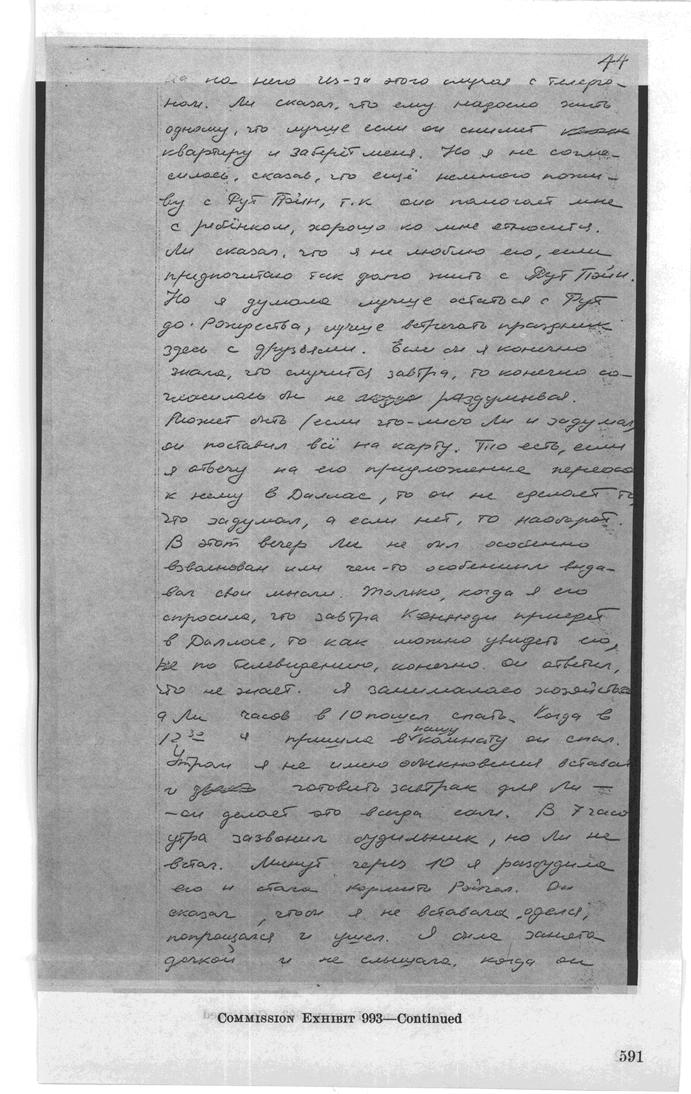 44
на него из-за этого случая с телефо-
ном. Ли сказал, что ему надоело жить
одному, что лучше если он снимет
квартиру и заберёт меня. Но я не согла-
силась, сказав, что ещё немного пожи-
ву с Рут Пэйн, т.к. она помогает мне
с ребёнком, хорошо ко мне относится.
Ли сказал, что я не люблю его, если
предпочитаю так долго жить с Рут Пэйн.
Но я думала лучше остаться с Рут
до Рождества, лучше встречать праздник
здесь с друзьями. Если бы я конечно
знала, что случится завтра, то конечно со-
гласилась бы не раздумывая.
Может быть (если что-либо Ли и задумал
он поставил всё на карту. То есть, если
я отвечу на его предложение
к нему в Даллас, то он не сделает то
что задумал, а если нет, то наоборот.
В этот вечер Ли не был особенно
взволнован или чем-то особенным выда-
вал свои мысли. Только, когда я его
спросила, что завтра Кеннеди приедет
в Даллас, то как можно увидеть его,
не по телевидению, конечно. Он ответил,
что не знает. Я занималась
а Ли часов в 10 пошел спать. Когда в
я пришла в нашу комнату он спал.
Утром я не имею обыкновения вставать
и готовить завтрак для Ли —
— он делает это всегда сам. В 7 часо
утра зазвонил будильник, но Ли не
встал. Минут через 10 я разбудила
его и стала кормить Рэйчел. Он
сказал, чтобы я не вставала, оделся,
попрощался и ушел. Я была занята
дочкой и не слышала, когда он
COMMISSION EXHIBIT 993—Continued
591